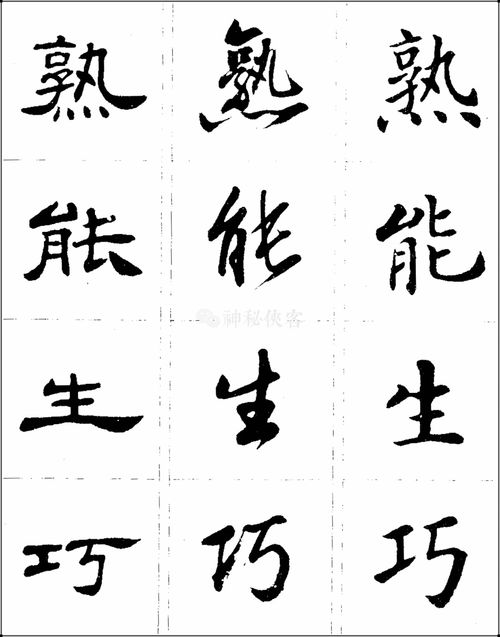 熟 熟 熟
能 能 能
神秘侠客
生 生 生
巧 巧 巧